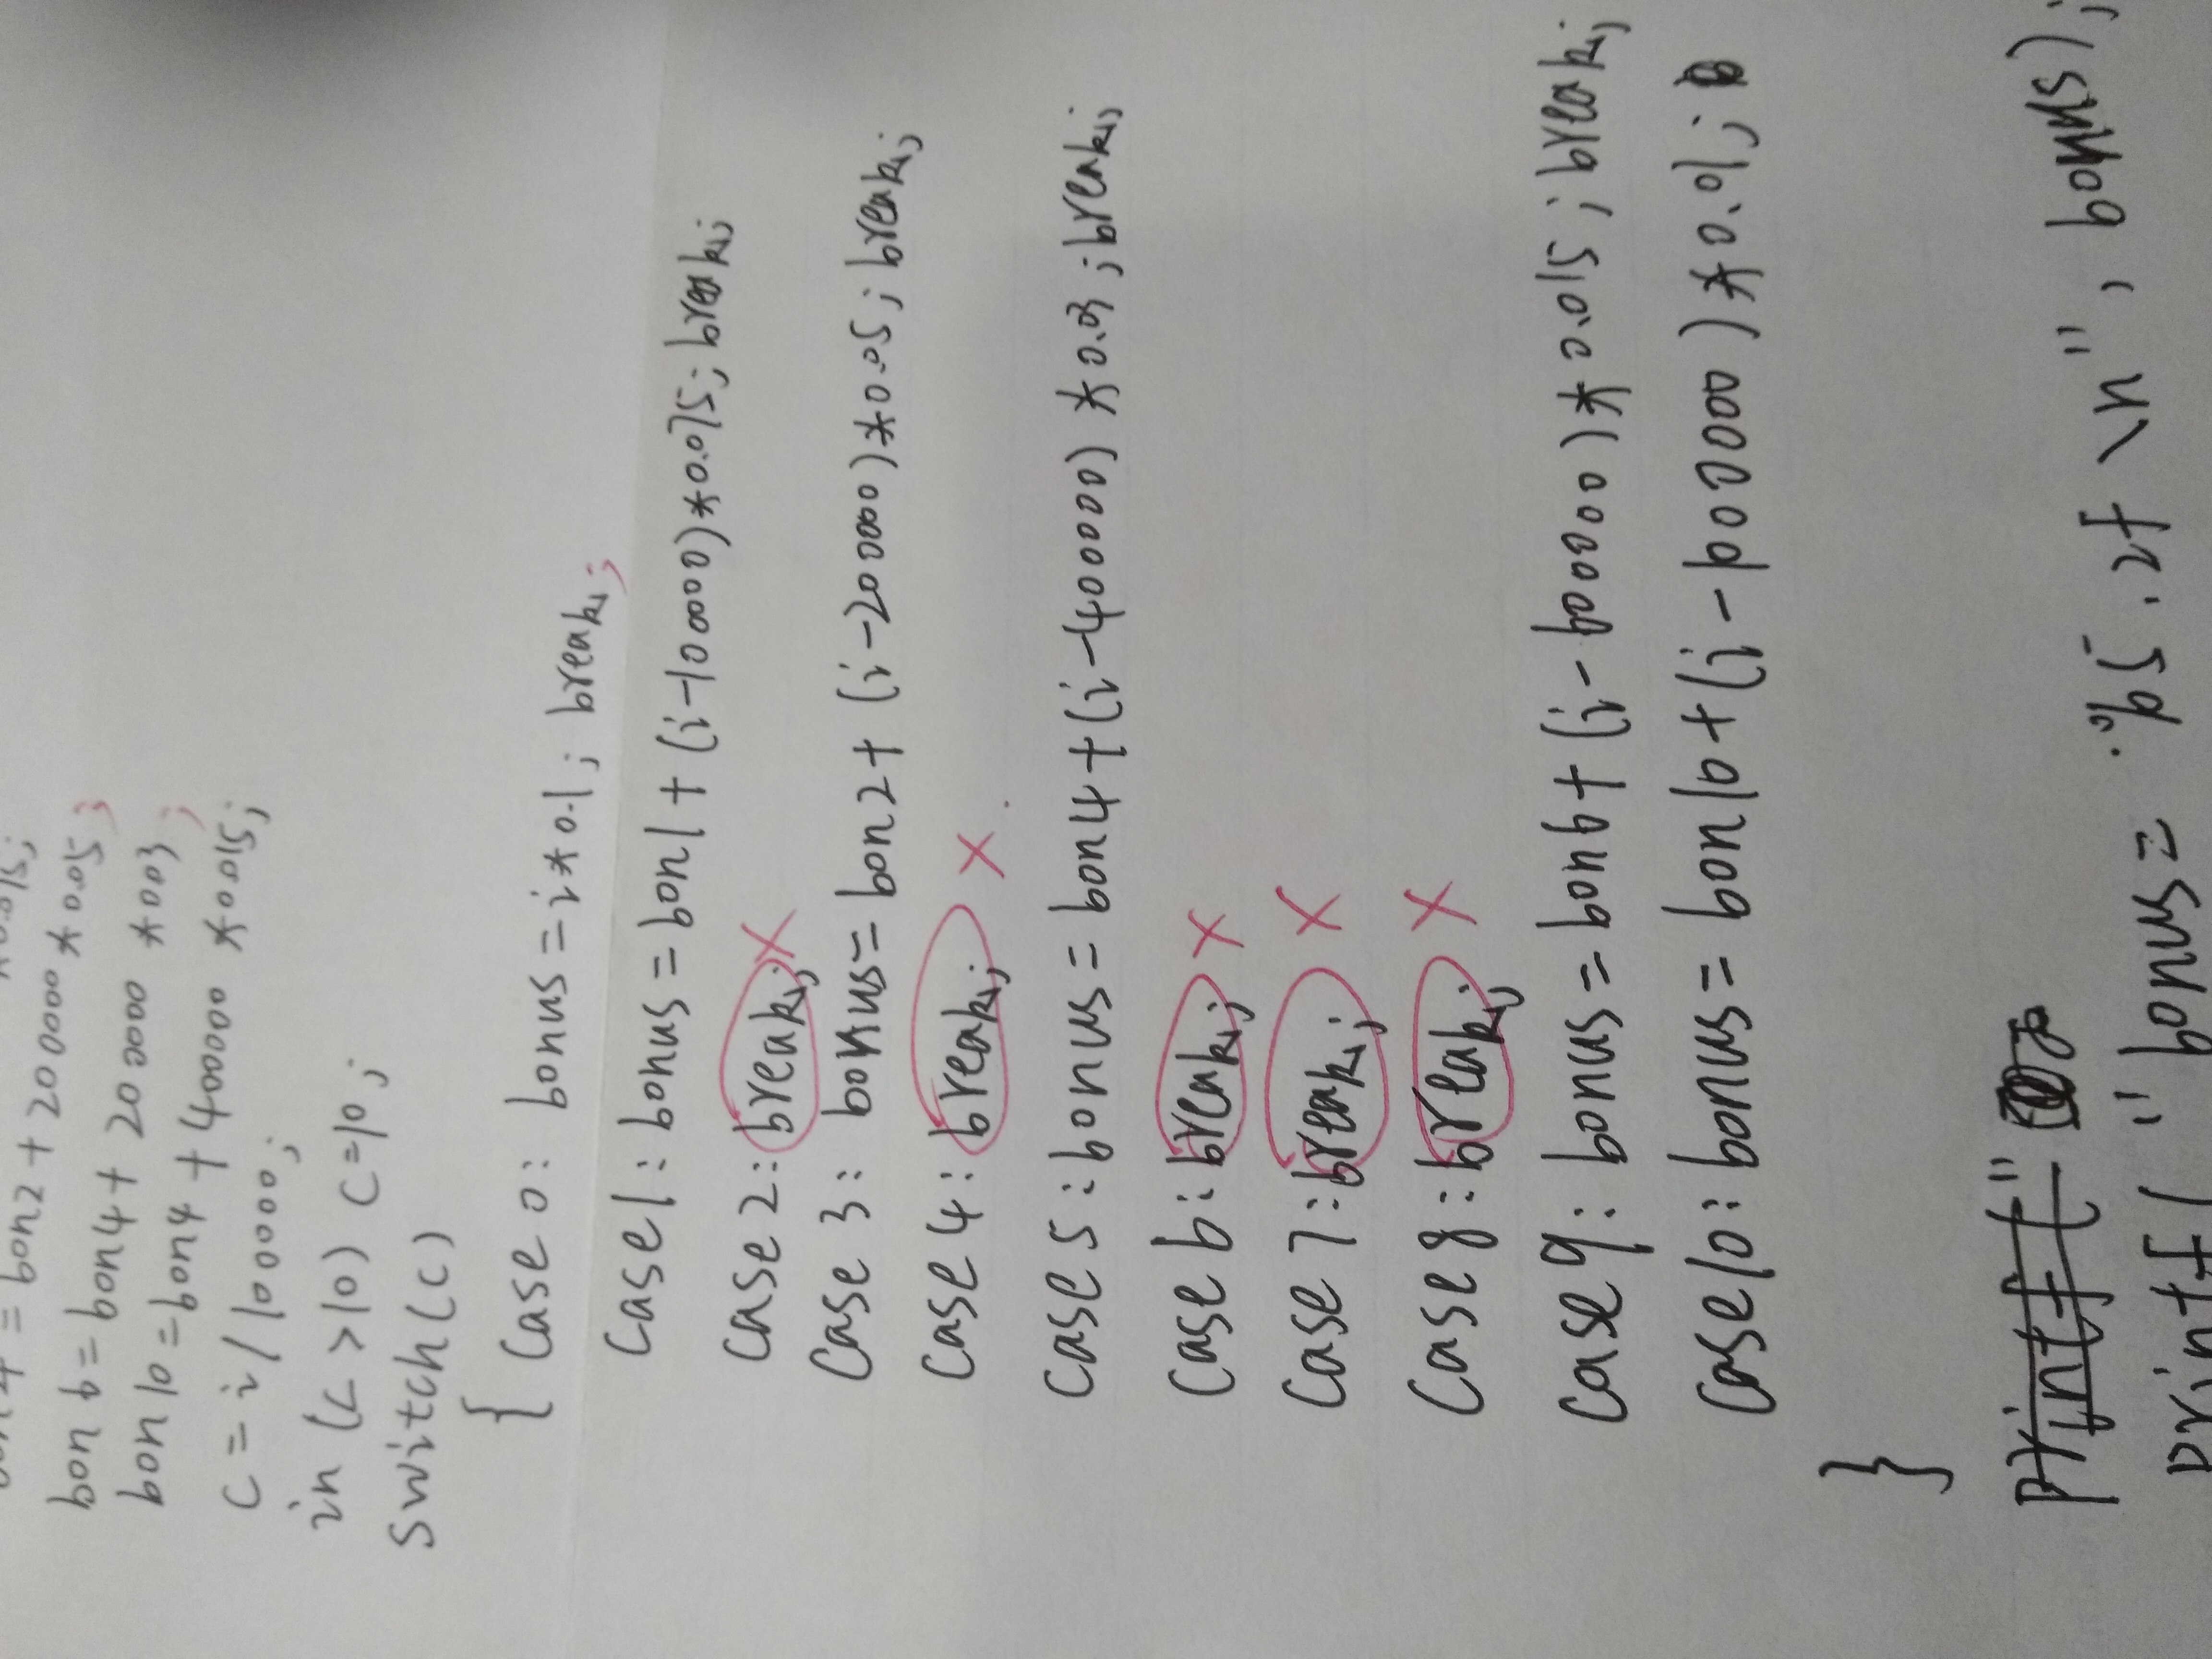 = bon2 + 200000 * 0.05;
bon 6 = bon4 + 200000 * 0.03;
bon 10 = bon4 + 400000 * 0.015;
c = i / 100000;
in (c > 10) c = 10;
switch(c)
{ case 0: bonus = i * 0.1; break;
case 1: bonus = bon1 + (i-100000) * 0.075; break;
case 2: break; ×
case 3: bonus = bon2 + (i-200000) * 0.05; break;
case 4: break; ×
case 5: bonus = bon4 + (i-400000) * 0.03; break;
case 6: break; ×
case 7: break; ×
case 8: break; ×
case 9: bonus = bon6 + (i-600000) * 0.015; break;
case 10: bonus = bon10 + (i-1000000) * 0.01;
}
printf("
printf( "bonus = %5.2f \n", bonus);